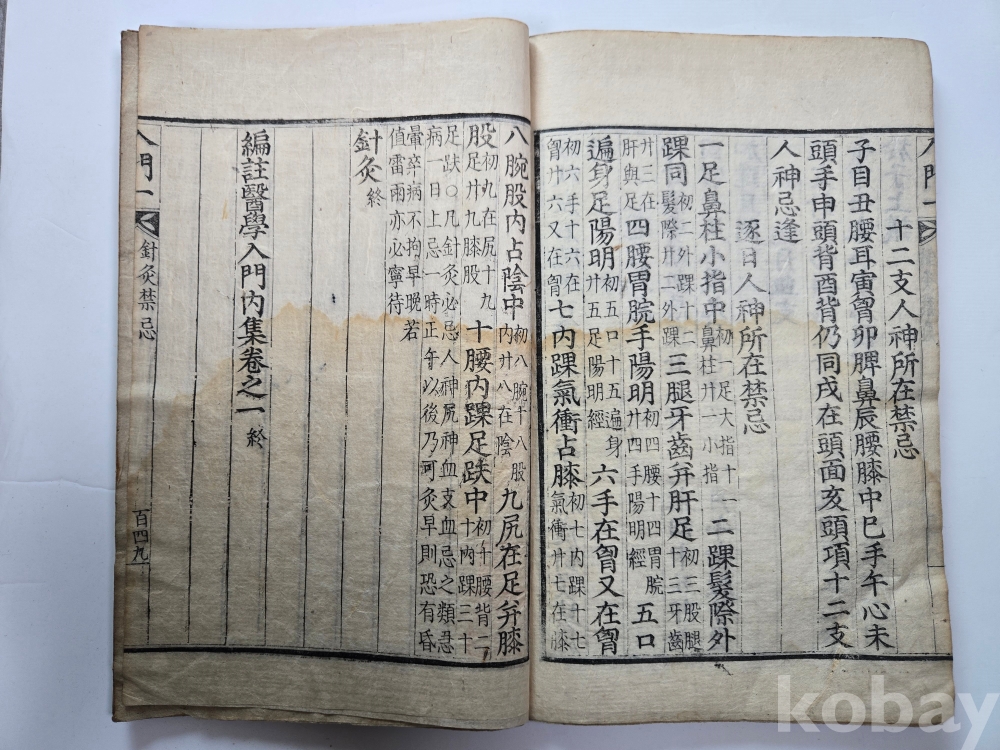 十二支人神所在禁忌
子目丑腰耳寅胷卯脾鼻辰腰膝中巳手午心未
頭手申頭背酉背仍同戌在頭面亥頭項十二支
人神忌逢
逐日人神所在禁忌
一足鼻柱小指中初一足大指十一鼻柱廿一小指二踝髮際外
踝同初二外踝十二髮際廿二外踝三腿牙齒幷肝足初三股腿十三牙齒
廿三在肝與足四腰胃脘手陽明初四腰十四胃脘廿四手陽明經五口
遍身足陽明初五口十五遍身廿五足陽明經六手在胷又在胷
初六手十六在胷廿六又在胷七內踝氣衝占膝初七內踝十七氣衝廿七在膝
八腕股內占陰中初八腕十八股內廿八在陰九尻在足幷膝
股初九在尻十九足廿九膝股十腰內踝足趺中初十腰背二十內踝三十
足趺〇凡針灸必忌人神尻神血支血忌之類急
病一日上忌一時正午以後乃可灸早則恐有昏
暈卒病不拘早晚若
值雷雨亦必寧待
針灸終
編註醫學入門內集卷之一 終
入門一
針灸禁忌
百四九
kobay